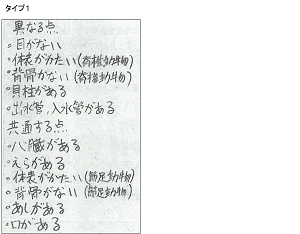 タイプ1
異なる点
・目がない
・体表がかたい(脊椎動物)
・背骨がない(脊椎動物)
・貝柱がある
・出水管、入水管がある
共通する点
・心臓がある
・えらがある
・体表がかたい(節足動物)
・背骨がない(節足動物)
・あしがある
・口がある